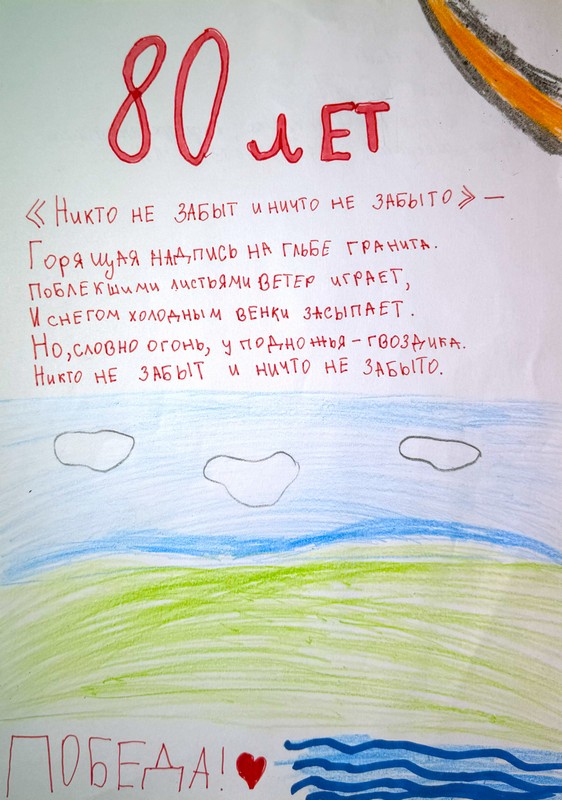 80 ЛЕТ
«Никто не забыт и ничто не забыто» —
Горящая надпись на глыбе гранита.
Поблекшими листьями ветер играет,
И снегом холодным венки засыпает.
Но, словно огонь, у подножья - гвоздика.
Никто не забыт и ничто не забыто.
ПОБЕДА!